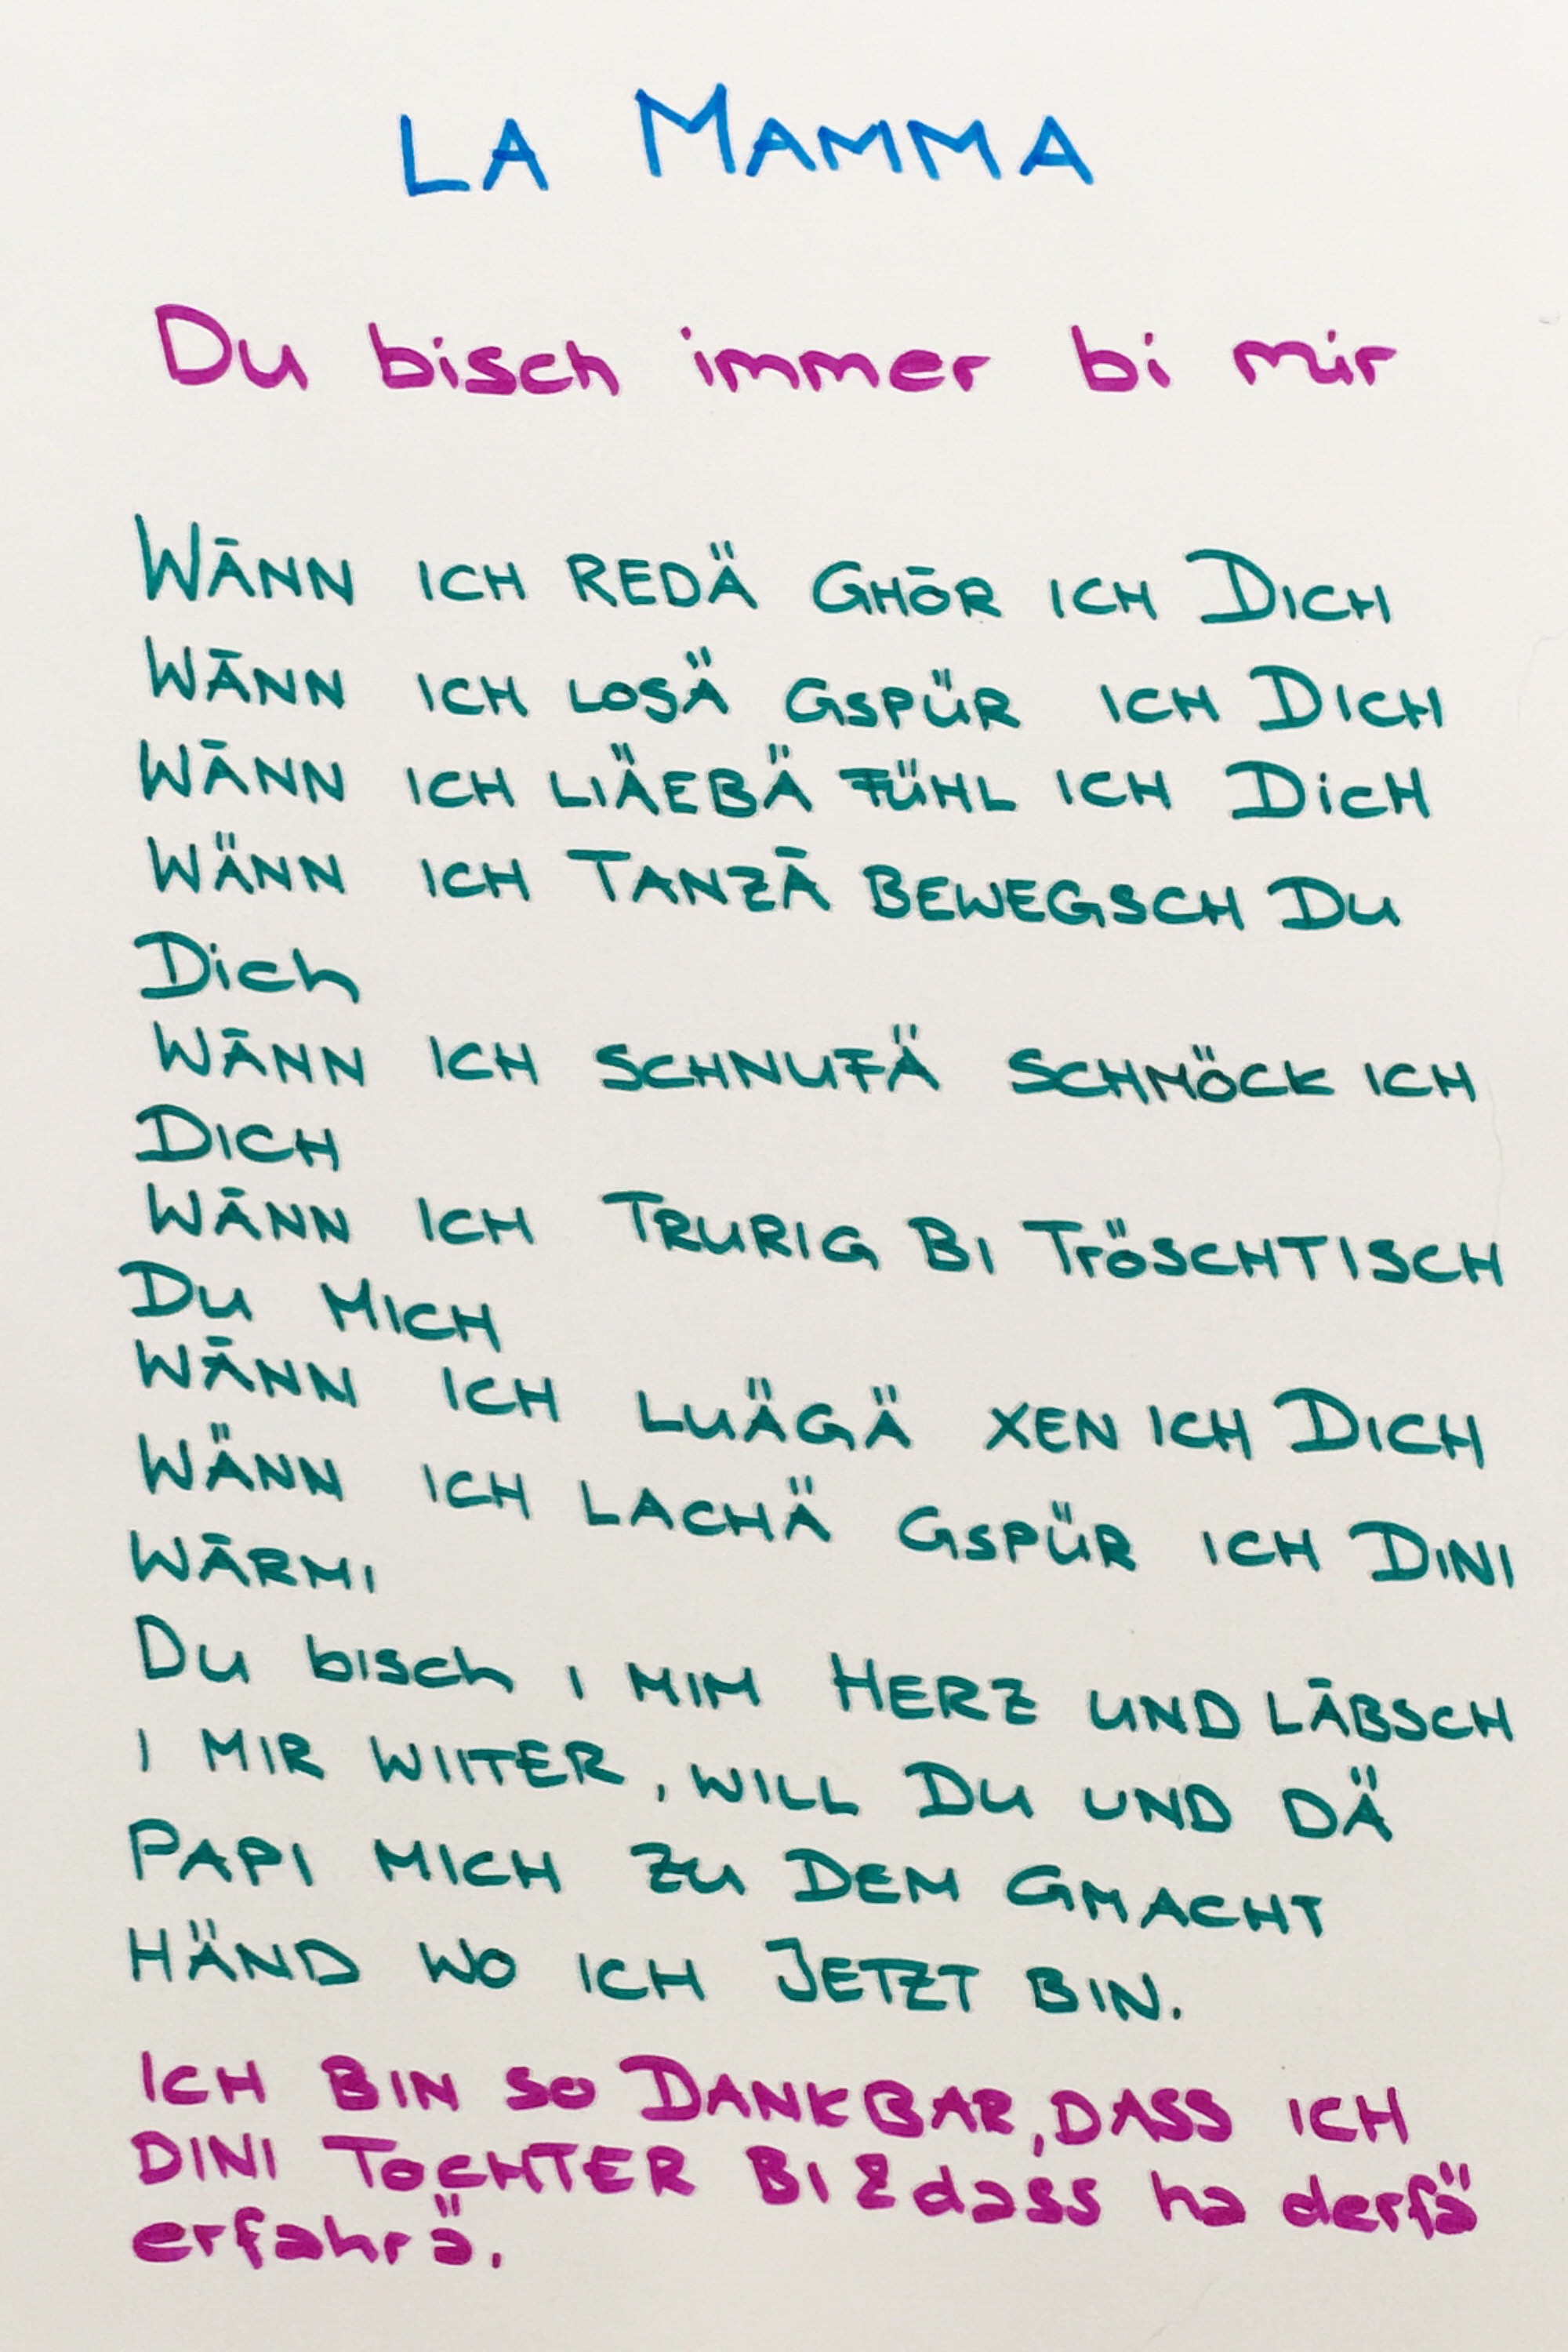 LA MAMMA
Du bisch immer bi mir
WÄNN ICH REDÄ GHÖR ICH DICH
WÄNN ICH LOSÄ GSPÜR ICH DICH
WÄNN ICH LIÄEBÄ FÜHL ICH DicH
WÄNN ICH TANZÄ BEWEGSCH Du
Dich
WÄNN ICH SCHNUFÄ SCHMÖCK ICH
DICH
WÄNN ICH TRURIG BI TröSCHTISCH
Du MICH
WÄNN ICH LUÄGÄ XEN ICH DICH
WÄNN ICH LACHÄ GSPÜR ICH DINI
WÄRMI
Du bisch I MIM HERZ UND LÄBSCH
I MIR WIITER, WILL Du UND DÄ
PAPI MICH ZU DEM GMACHT
HÄND WO ICH JETZT BIN.
ICH BIN SO DANKBAR, DASS ICH
DINI TOCHTER BI & dass ha derfä
erfahrä.